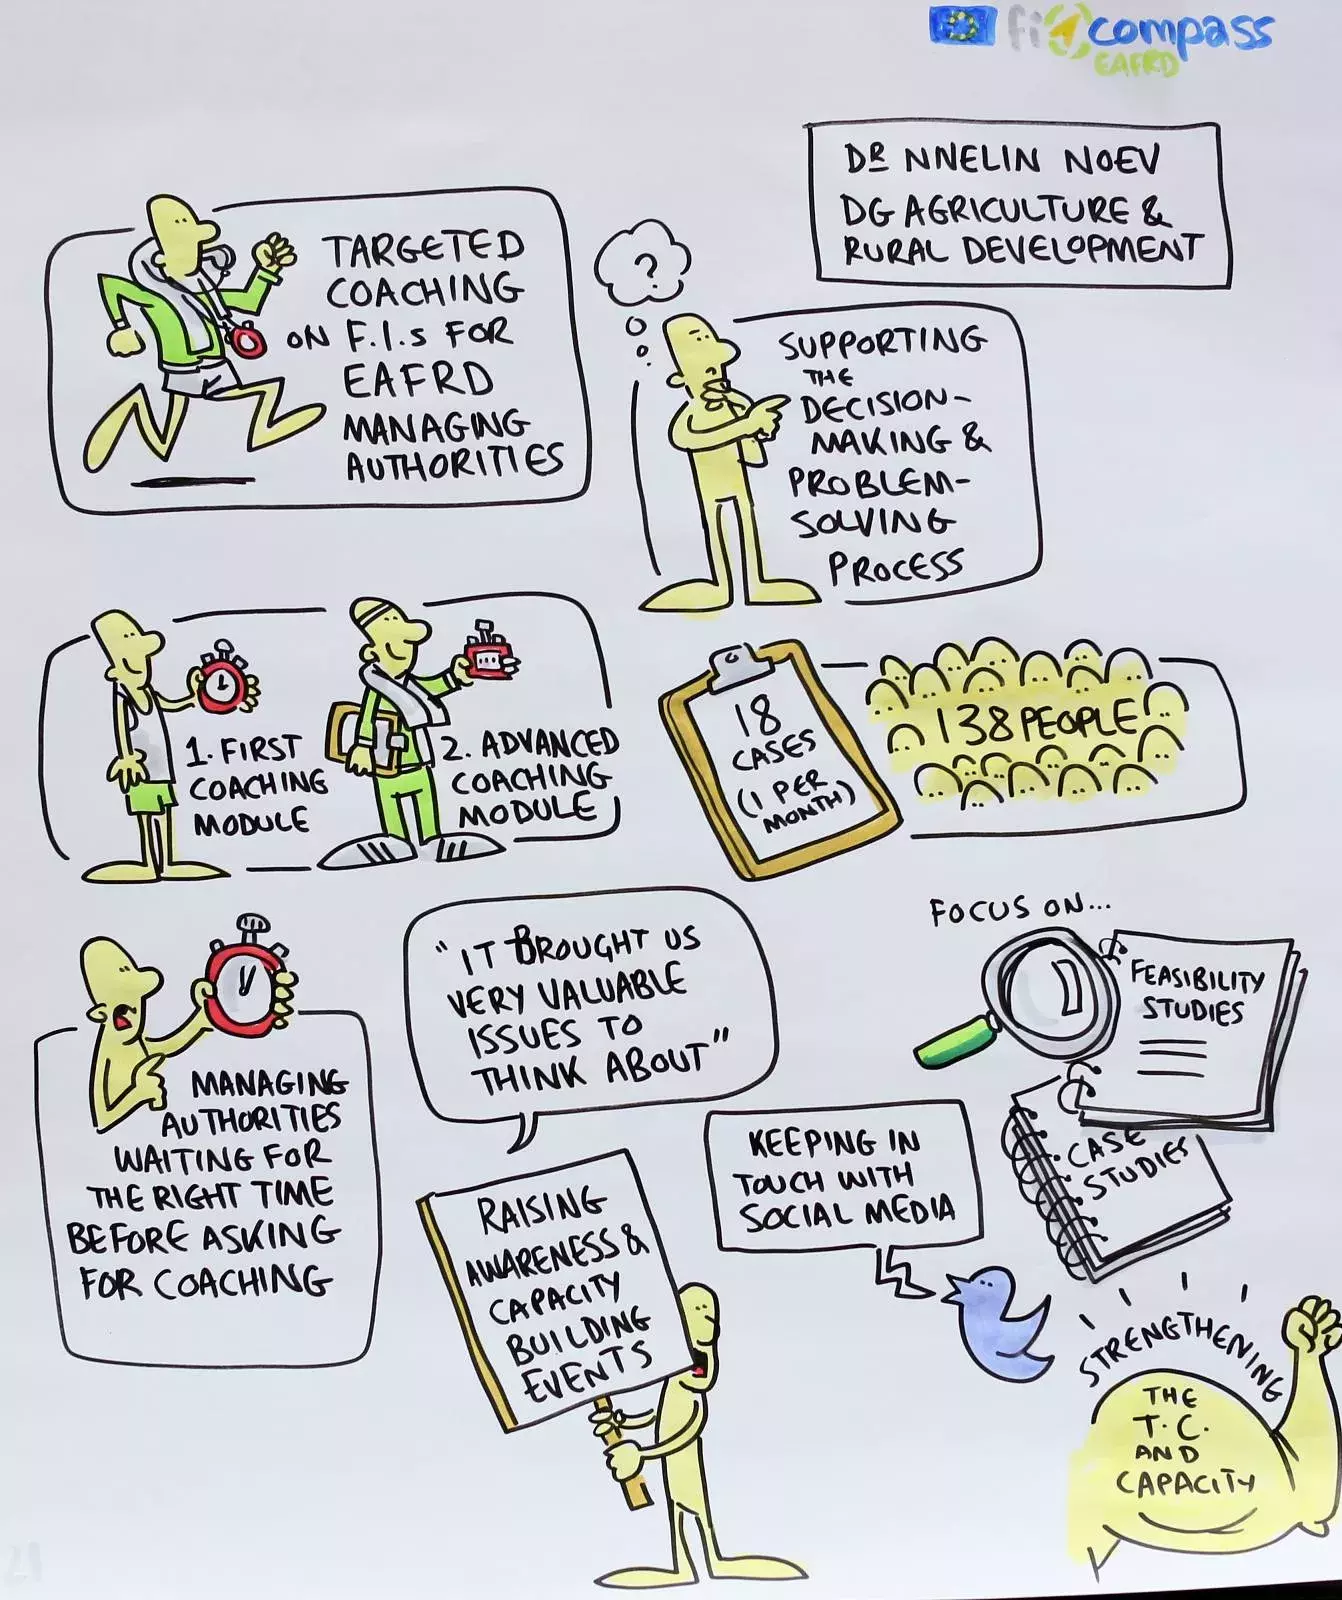 fi compass
EAFRD
DR NNELIN NOEV
DG AGRICULTURE &
RURAL DEVELOPMENT
TARGETED
COACHING
ON F.I.s FOR
EAFRD
MANAGING
AUTHORITIES
?
SUPPORTING
THE
DECISION-
MAKING &
PROBLEM-
SOLVING
PROCESS
1. FIRST
COACHING
MODULE
2. ADVANCED
COACHING
MODULE
18
CASES
(1 PER
MONTH)
138 PEOPLE
MANAGING
AUTHORITIES
WAITING FOR
THE RIGHT TIME
BEFORE ASKING
FOR COACHING
"IT BROUGHT US
VERY VALUABLE
ISSUES TO
THINK ABOUT"
RAISING
AWARENESS &
CAPACITY
BUILDING
EVENTS
FOCUS ON...
FEASIBILITY
STUDIES
CASE
STUDIES
KEEPING IN
TOUCH WITH
SOCIAL MEDIA
STRENGTHENING
THE
T.C.
AND
CAPACITY
21